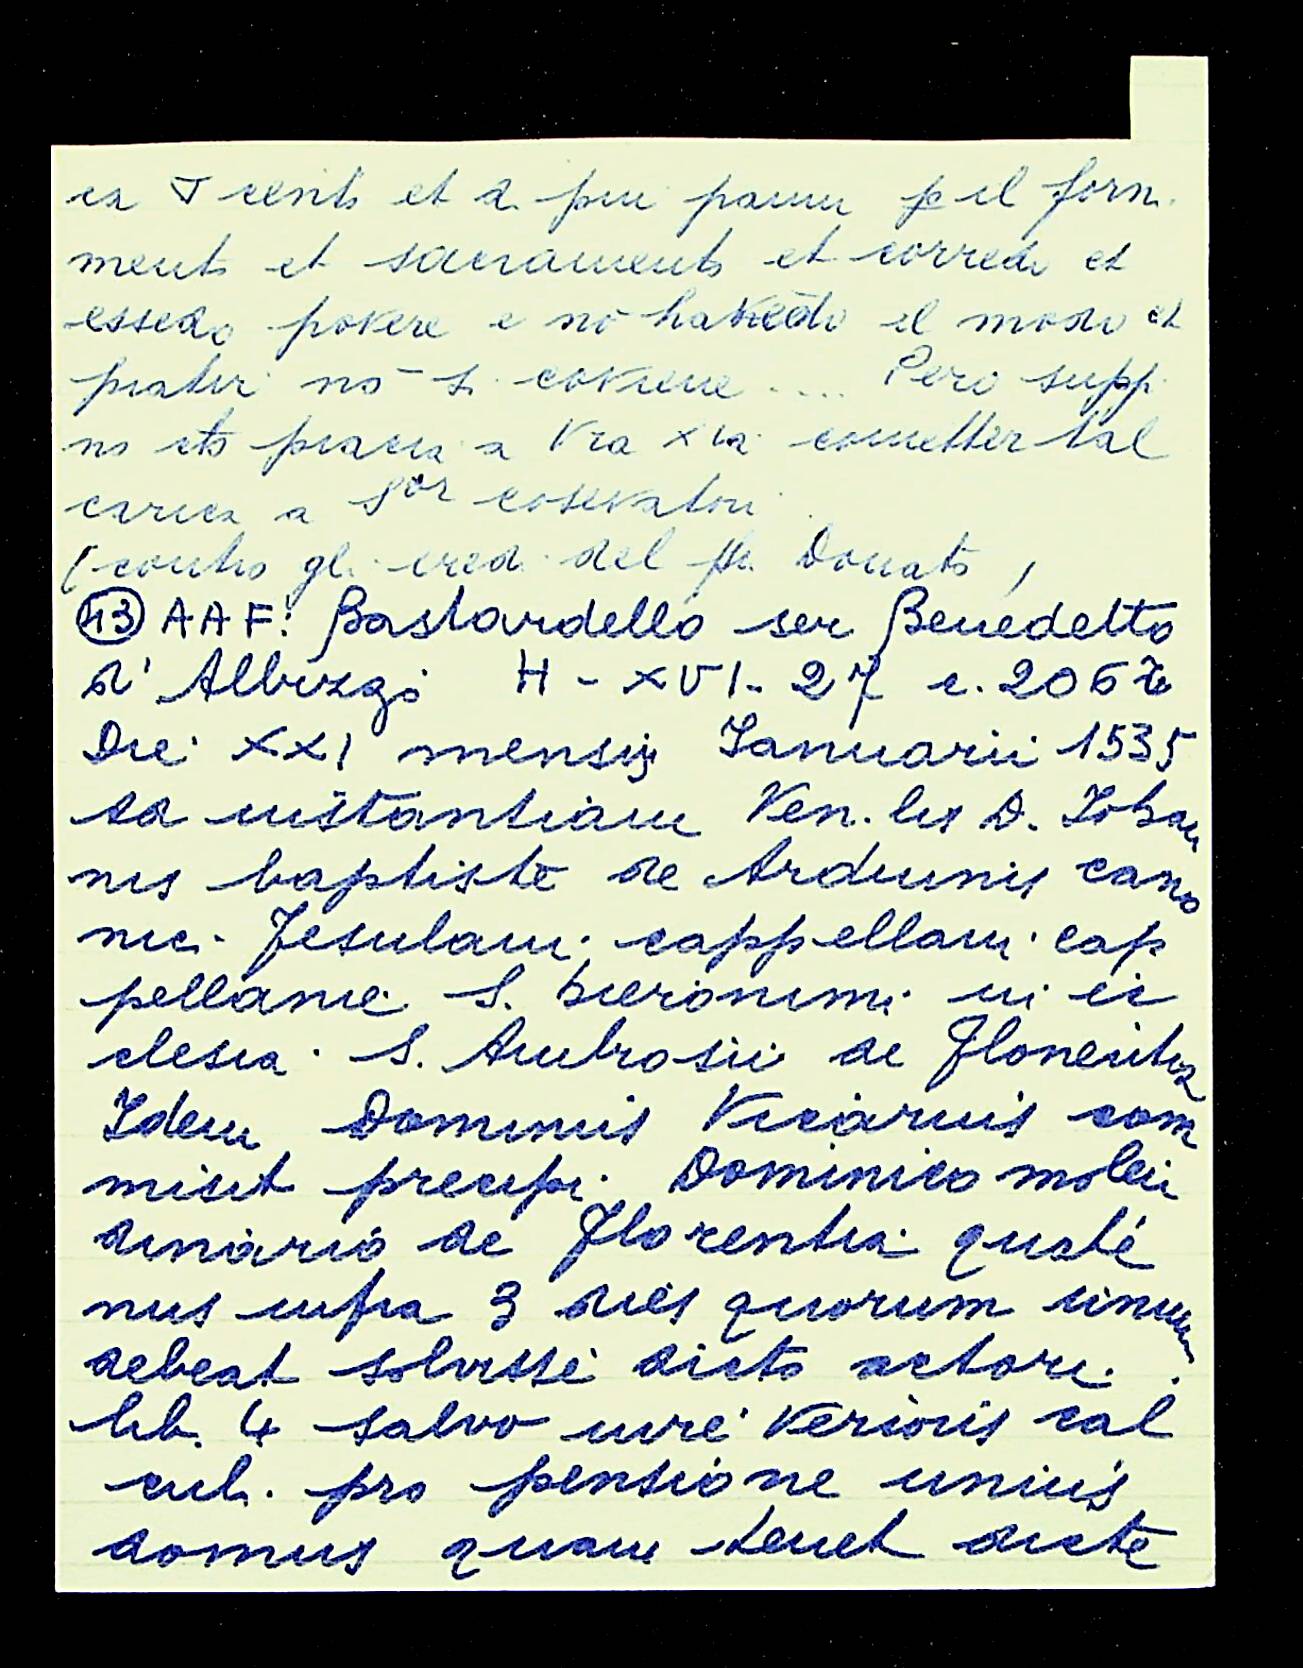 ca ∇ cento et d. piu panni p el forn.
mento et sacramento et corredo et
essedo povere e nō havēdo el modo et
piatir nō si coviene .... Però supp.
no etc piaccia a Vra Xia cometter tal
carica a Sor coservatori
(contro gli eredi del fu Donato)
(43) AAF: Bastardello ser Benedetto
d'Albizzo H - XVI - 27 c. 206
Die XXI mensis Januarii 1535
ad instantiam Ven. lis D. Johan
nis baptiste de Arduinis cano
nici Fesulani cappellani cap
pellanie S. hieronimi in ec
clesia S. Ambrosii de Florentia
Idem Dominus Vicarius com
misit precipi Dominico molen
dinario de Florentia quate
nus infra 3 dies quorum unum
debeat solvisse dicto actori
lib. 4 salvo iure verioris cal
culi pro pensione unius
domus quam tenet dicte